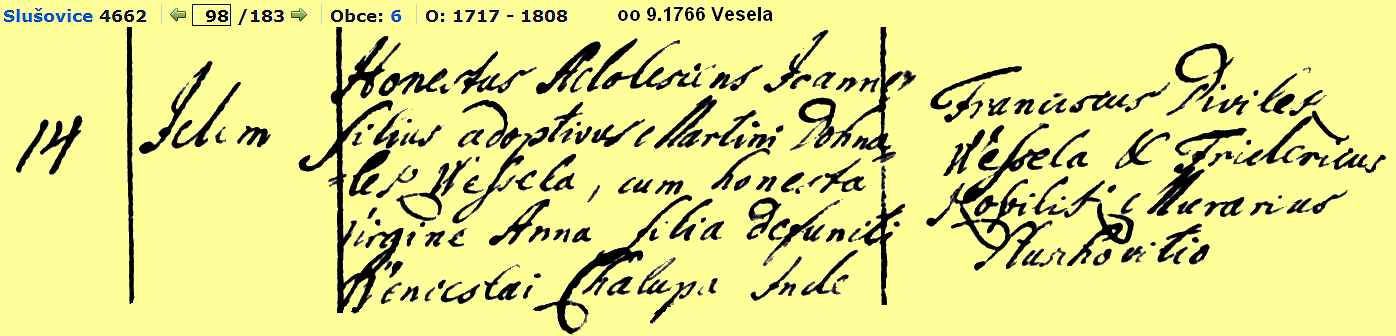 Slušovice 4662 98 /183 Obce: 6 O: 1717 - 1808 oo 9.1766 Vesela
14
Idem
Honestus Adolescens Joannes
filius adoptivus Martini Dohna=
=lex Wessela, cum honesta
Virgine Anna filia defuncti
Wenceslai Chalupa Inde
Franciscus Divilex
Wessela & Fridericus
Nobilis Murarius